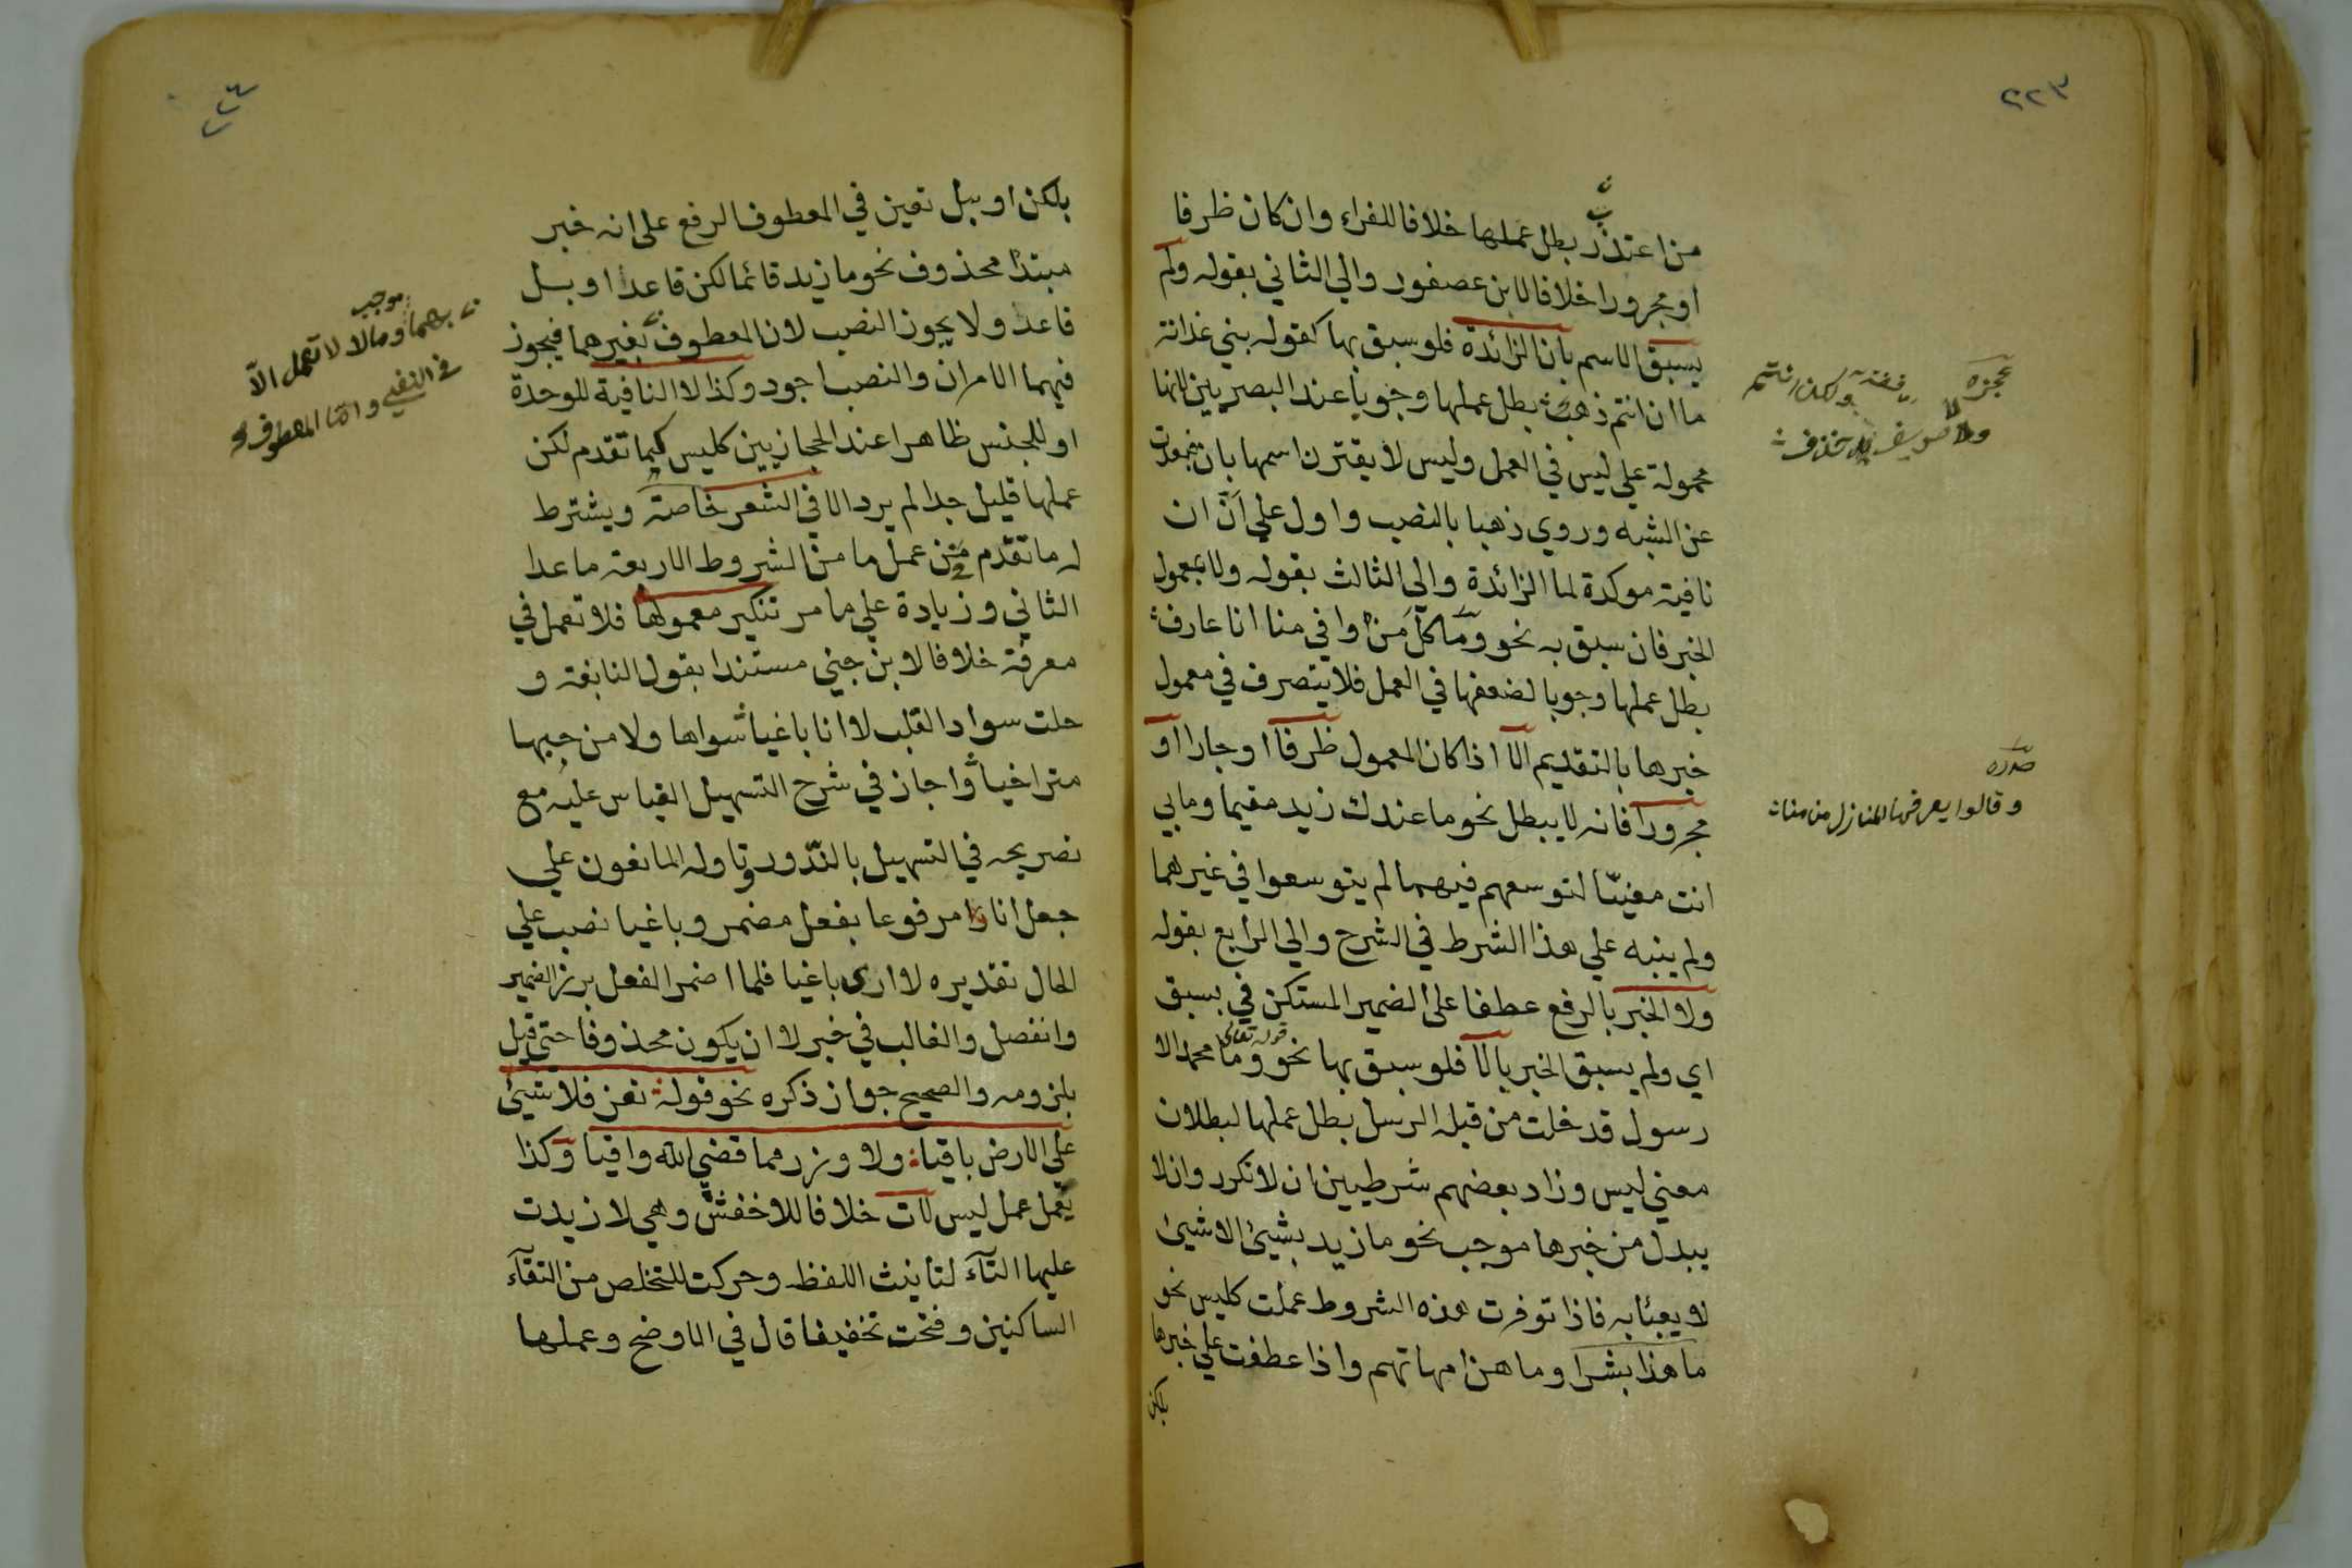 ٢٢٣
من اعتذر بطل عملها خلافا للفراء وان كان ظرفا
او مجرورا خلافا لابن عصفور والي الثاني بقوله ولم
يسبق الاسم بان الزائدة فلو سبق بها كقوله بني غدانة
ما ان انتم ذهب بطل عملها وجوبا عند البصريين لانها
محمولة علي ليس في العمل وليس لا يقترن اسمها بان فبعدت
عن الشبه وروي ذهبا بالنصب واول علي انّ ان
نافية موكدة لما الزائدة والي الثالث بقوله ولا بمعمول
الخبر فان سبق به نحو وما كل من وافي منا انا عارف
بطل عملها وجوبا لضعفها في العمل فلا يتصرف في معمول
خبرها بالتقديم الا اذا كان المعمول ظرفا او جارا او
مجرورا فانه لا يبطل نحو ما عندك زيد مقيما وما بي
انت معنيّا لتوسعهم فيهما لم يتوسعوا في غيرهما
ولم ينبه علي هذا الشرط في الشرح والي الرابع بقوله
ولا الخبر بالرفع عطفا علي الضمير المستكن في بسبق
اي ولم يسبق الخبر بالا فلو سبق بها نحو قوله تعالي وما محمد الا
رسول قد خلت من قبله الرسل بطل عملها لبطلان
معني ليس وزاد بعضهم شرطيين ان لا تكرر وان لا
يبدل من خبرها موجب نحو ما زيد بشيئ الا شيئ
لا يعبئا به فاذا توفرت هذه الشروط عملت كليس نحو
ما هذا بشرا وما هن امهاتهم واذا عطفت علي خبرها
بلكن
عجزه
ولكن انتم
صدره
وقالوا تعرفها المنازل من منا
٢٢٤
بلكن او ببل تعين في المعطوف الرفع علي انه خبر
مبتدا محذوف نحو ما زيد قائما لكن قاعدا او بل
قاعد ولا يجوز النصب لان المعطوف بغيرهما فيجوز
فيهما الامران والنصب اجود وكذا لا النافية للوحدة
او للجنس ظاهرا عند الحجازيين كليس كما تقدم لكن
عملها قليل جدا لم يرد الا في الشعر خاصة ويشترط
له ما تقدم من عمل ما من الشروط الاربعة ما عدا
الثاني وزيادة علي ما مر تنكير معمولها فلا تعمل في
معرفة خلافا لابن جني مستندا بقول النابغة و
حلت سواد القلب لا انا باغيا سواها ولا من حبها
متراخيا واجاز في شرح التسهيل القياس عليه مع
تصريحه في التسهيل بالندور وتاوله المانعون علي
جعل انا مرفوعا بفعل مضمر وباغيا نصب علي
الحال تقديره لا اري باغيا فلما اضمر الفعل برز الضمير
وانفصل والغالب في خبر لا ان يكون محذوفا حتي قيل
بلزومه والصحيح جواز ذكره نحو قوله تعز فلا شيئ
علي الارض باقيا ولا وزر مما قضي الله واقيا وكذا
يعمل عمل ليس لات خلافا للاخفش وهي لا زيدت
عليها التآء لتانيث اللفظ وحركت للتخلص من التقآء
الساكنين وفتحت تخفيفا قال في الاوضح وعملها
بهما موجب وما لا لا تعمل الا
في النفي واما المعطوف